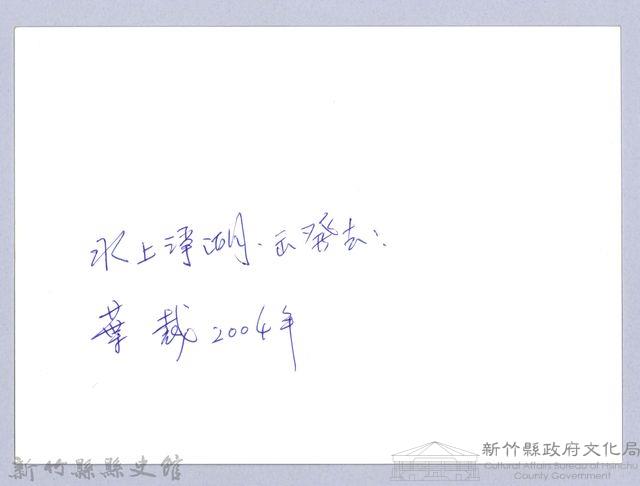 水上淨湖.出發去:
葉裁 2004年
新竹縣縣史館
新竹縣政府文化局
Cultural Affairs Bureau of Hsinchu
County Government